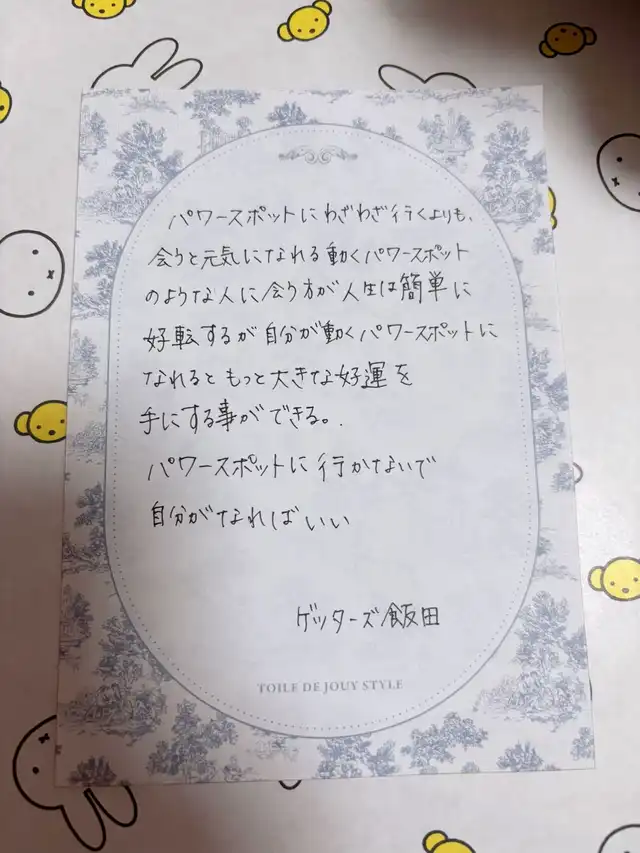 パワースポットにわざわざ行くよりも、
会うと元気になれる動くパワースポット
のような人に会う方が人生は簡単に
好転するが自分が動くパワースポットに
なれるともっと大きな好運を
手にする事ができる。.
パワースポットに行かないで
自分がなればいい
ゲッターズ飯田
TOILE DE JOUY STYLE